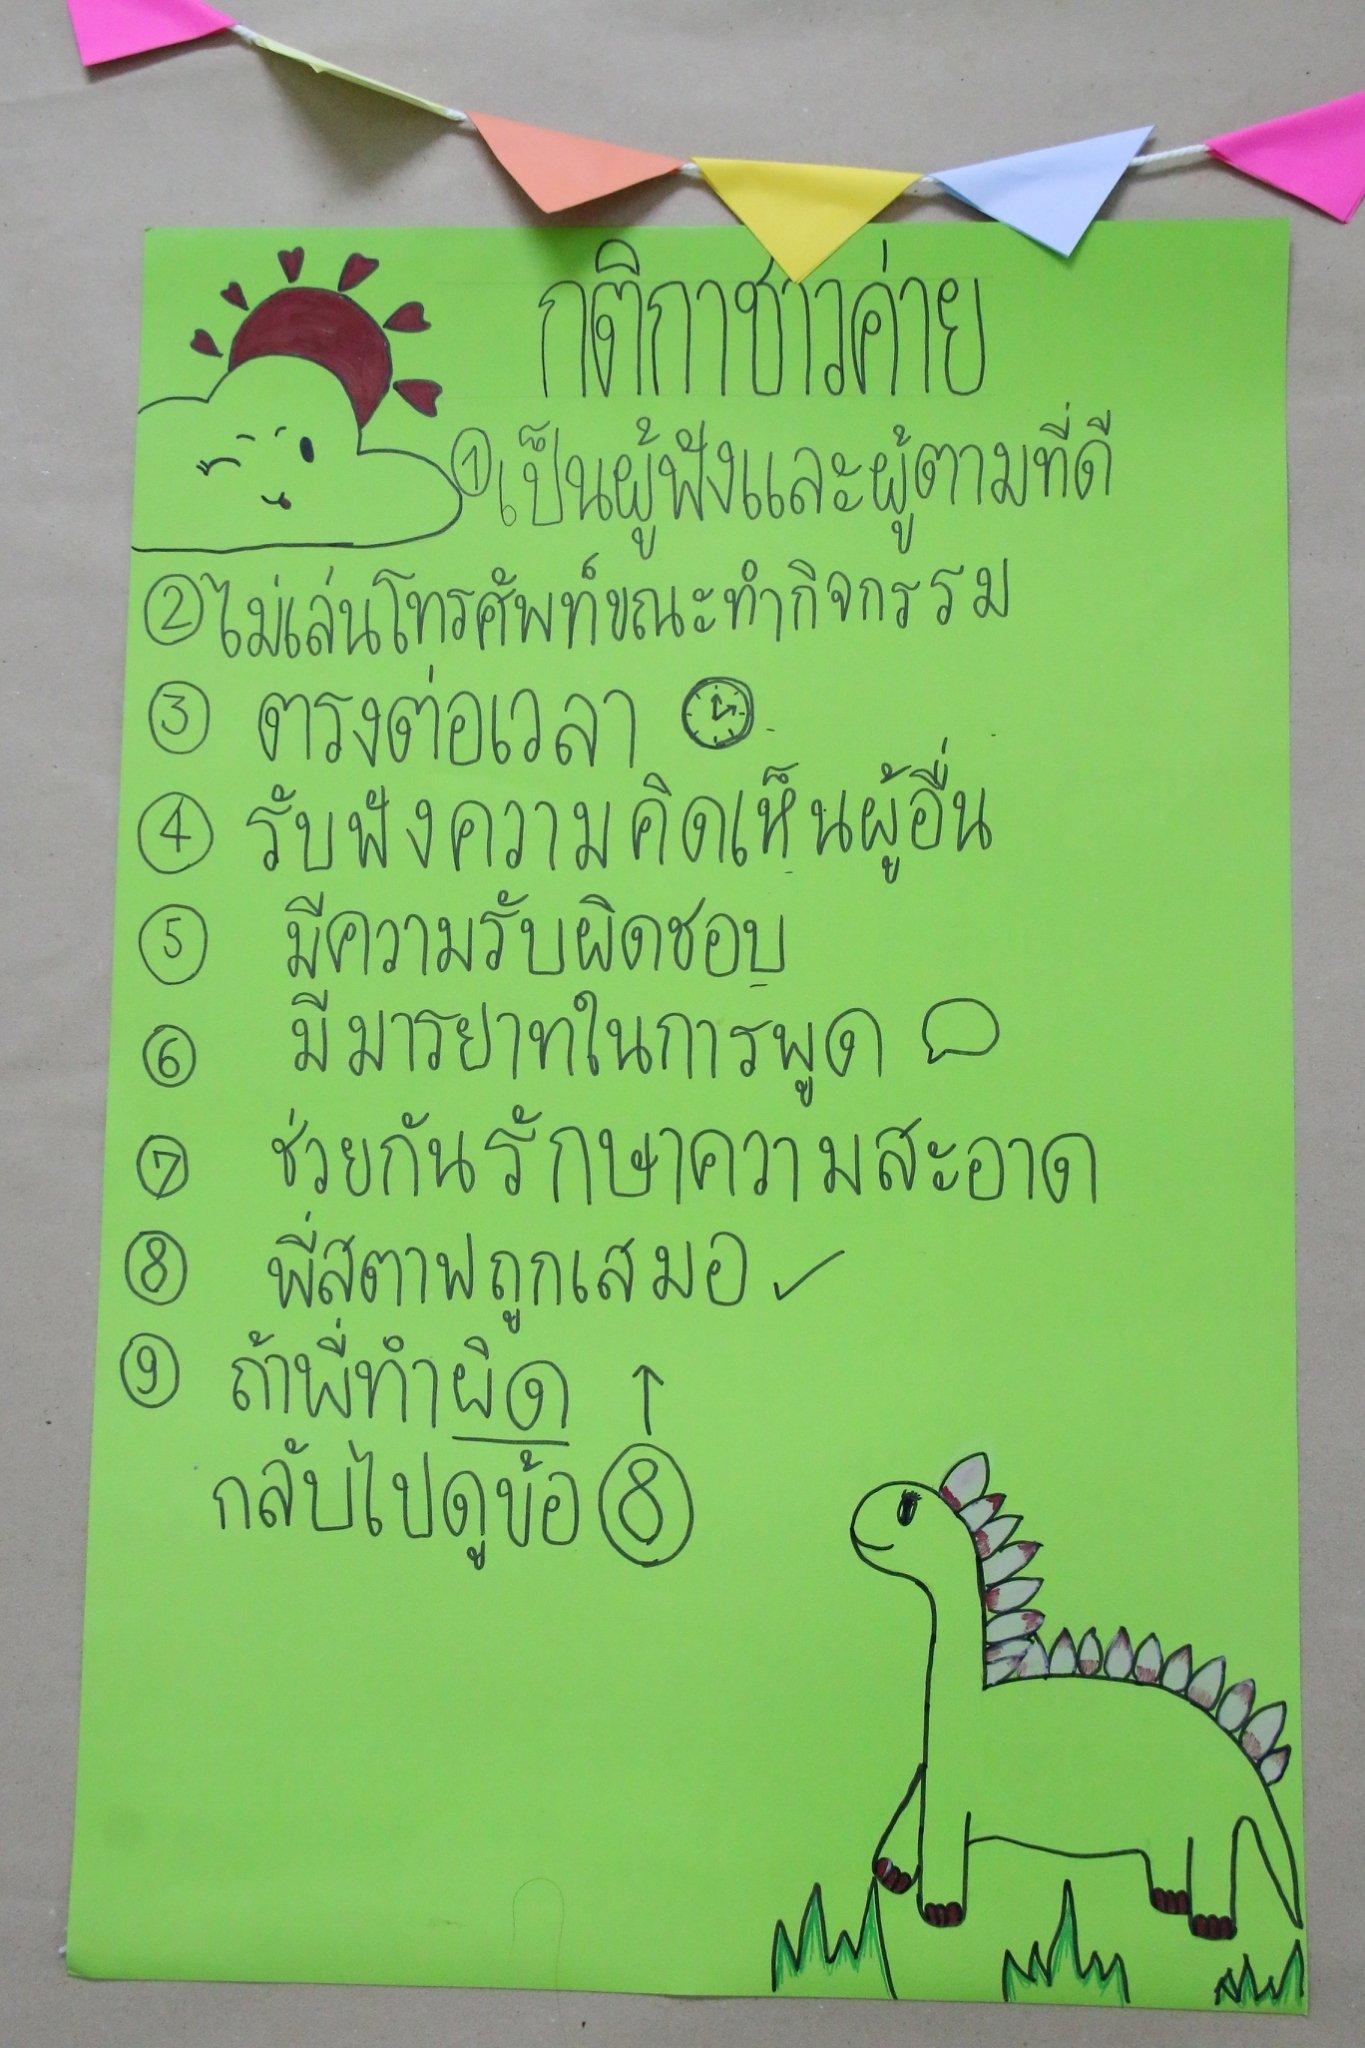 กติกาชาวค่าย
① เป็นผู้ฟังและผู้ตามที่ดี
② ไม่เล่นโทรศัพท์ขณะทำกิจกรรม
③ ตรงต่อเวลา
④ รับฟังความคิดเห็นผู้อื่น
⑤ มีความรับผิดชอบ
⑥ มีมารยาทในการพูด
⑦ ช่วยกันรักษาความสะอาด
⑧ พี่สตาฟถูกเสมอ ✓
⑨ ถ้าพี่ทำผิด ↑
กลับไปดูข้อ ⑧